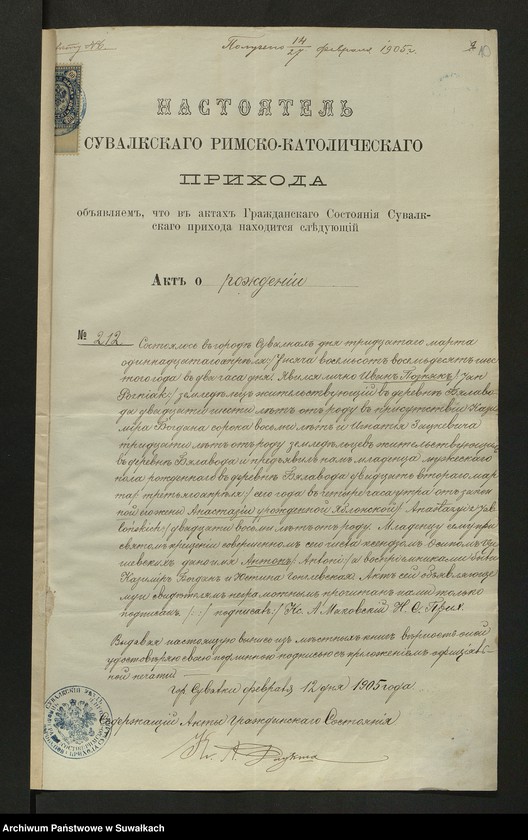 Получено 14/27 февраля 1905 г.
10
НАСТОЯТЕЛЬ
СУВАЛКСКАГО РИМСКО-КАТОЛИЧЕСКАГО
ПРИХОДА
объявляемъ, что въ актахъ Гражданскаго Состоянія Сувалк-
скаго прихода находится слѣдующій
Актъ о рожденіи
№ 212. Состоялось въ городѣ Сувалкахъ дня тридцатаго марта
одиннадцатаго апрѣля/ тысяча восемьсотъ восемьдесятъ шес-
того года въ два часа дня. Явился лично Иванъ Позняк /Jan
Poźniak/ земледѣлецъ жительствующій въ деревнѣ Бялаво-
да двадцати шести лѣтъ отъ роду въ присутствіи Кази-
мира Богдана сорока восьми лѣтъ и Игнатія
тридцати лѣтъ отъ роду земледѣльцевъ жительствующихъ
въ деревнѣ Бялавода и предъявилъ намъ младенца мужескаго
пола рожденнаго въ деревнѣ Бялавода двадцать втораго мар-
та/ третьяго апрѣля/ сего года въ четыре часа утра отъ закон-
ной его жены Анастазіи урожденной Яблонской/ Anastazyi z Jab-
łońskich/ двадцати восьми лѣтъ отъ роду. Младенцу сему при
святомъ крещеніи совершенномъ сего числа ксендзомъ Осипомъ
дано имя Антонъ /Antoni/ а воспріемниками были
Казимиръ Богданъ и Устина Актъ сей объявляюще-
му и свидѣтелямъ неграмотнымъ прочитанъ нами только
подписанъ подписалъ:/ Кс. А. Маковскій Н. С. Прих.
Выдавая настоящую выпись изъ мѣстныхъ книгъ вѣрность оной
удостовѣряю своею подлинною подписью съ приложеніемъ оффиціаль-
ной печати
гор. Сувалки февраля 12 дня 1905 года
Содержащій Акты Гражданскаго Состоянія
Кс. А.
Archiwum Państwowe w Suwałkach